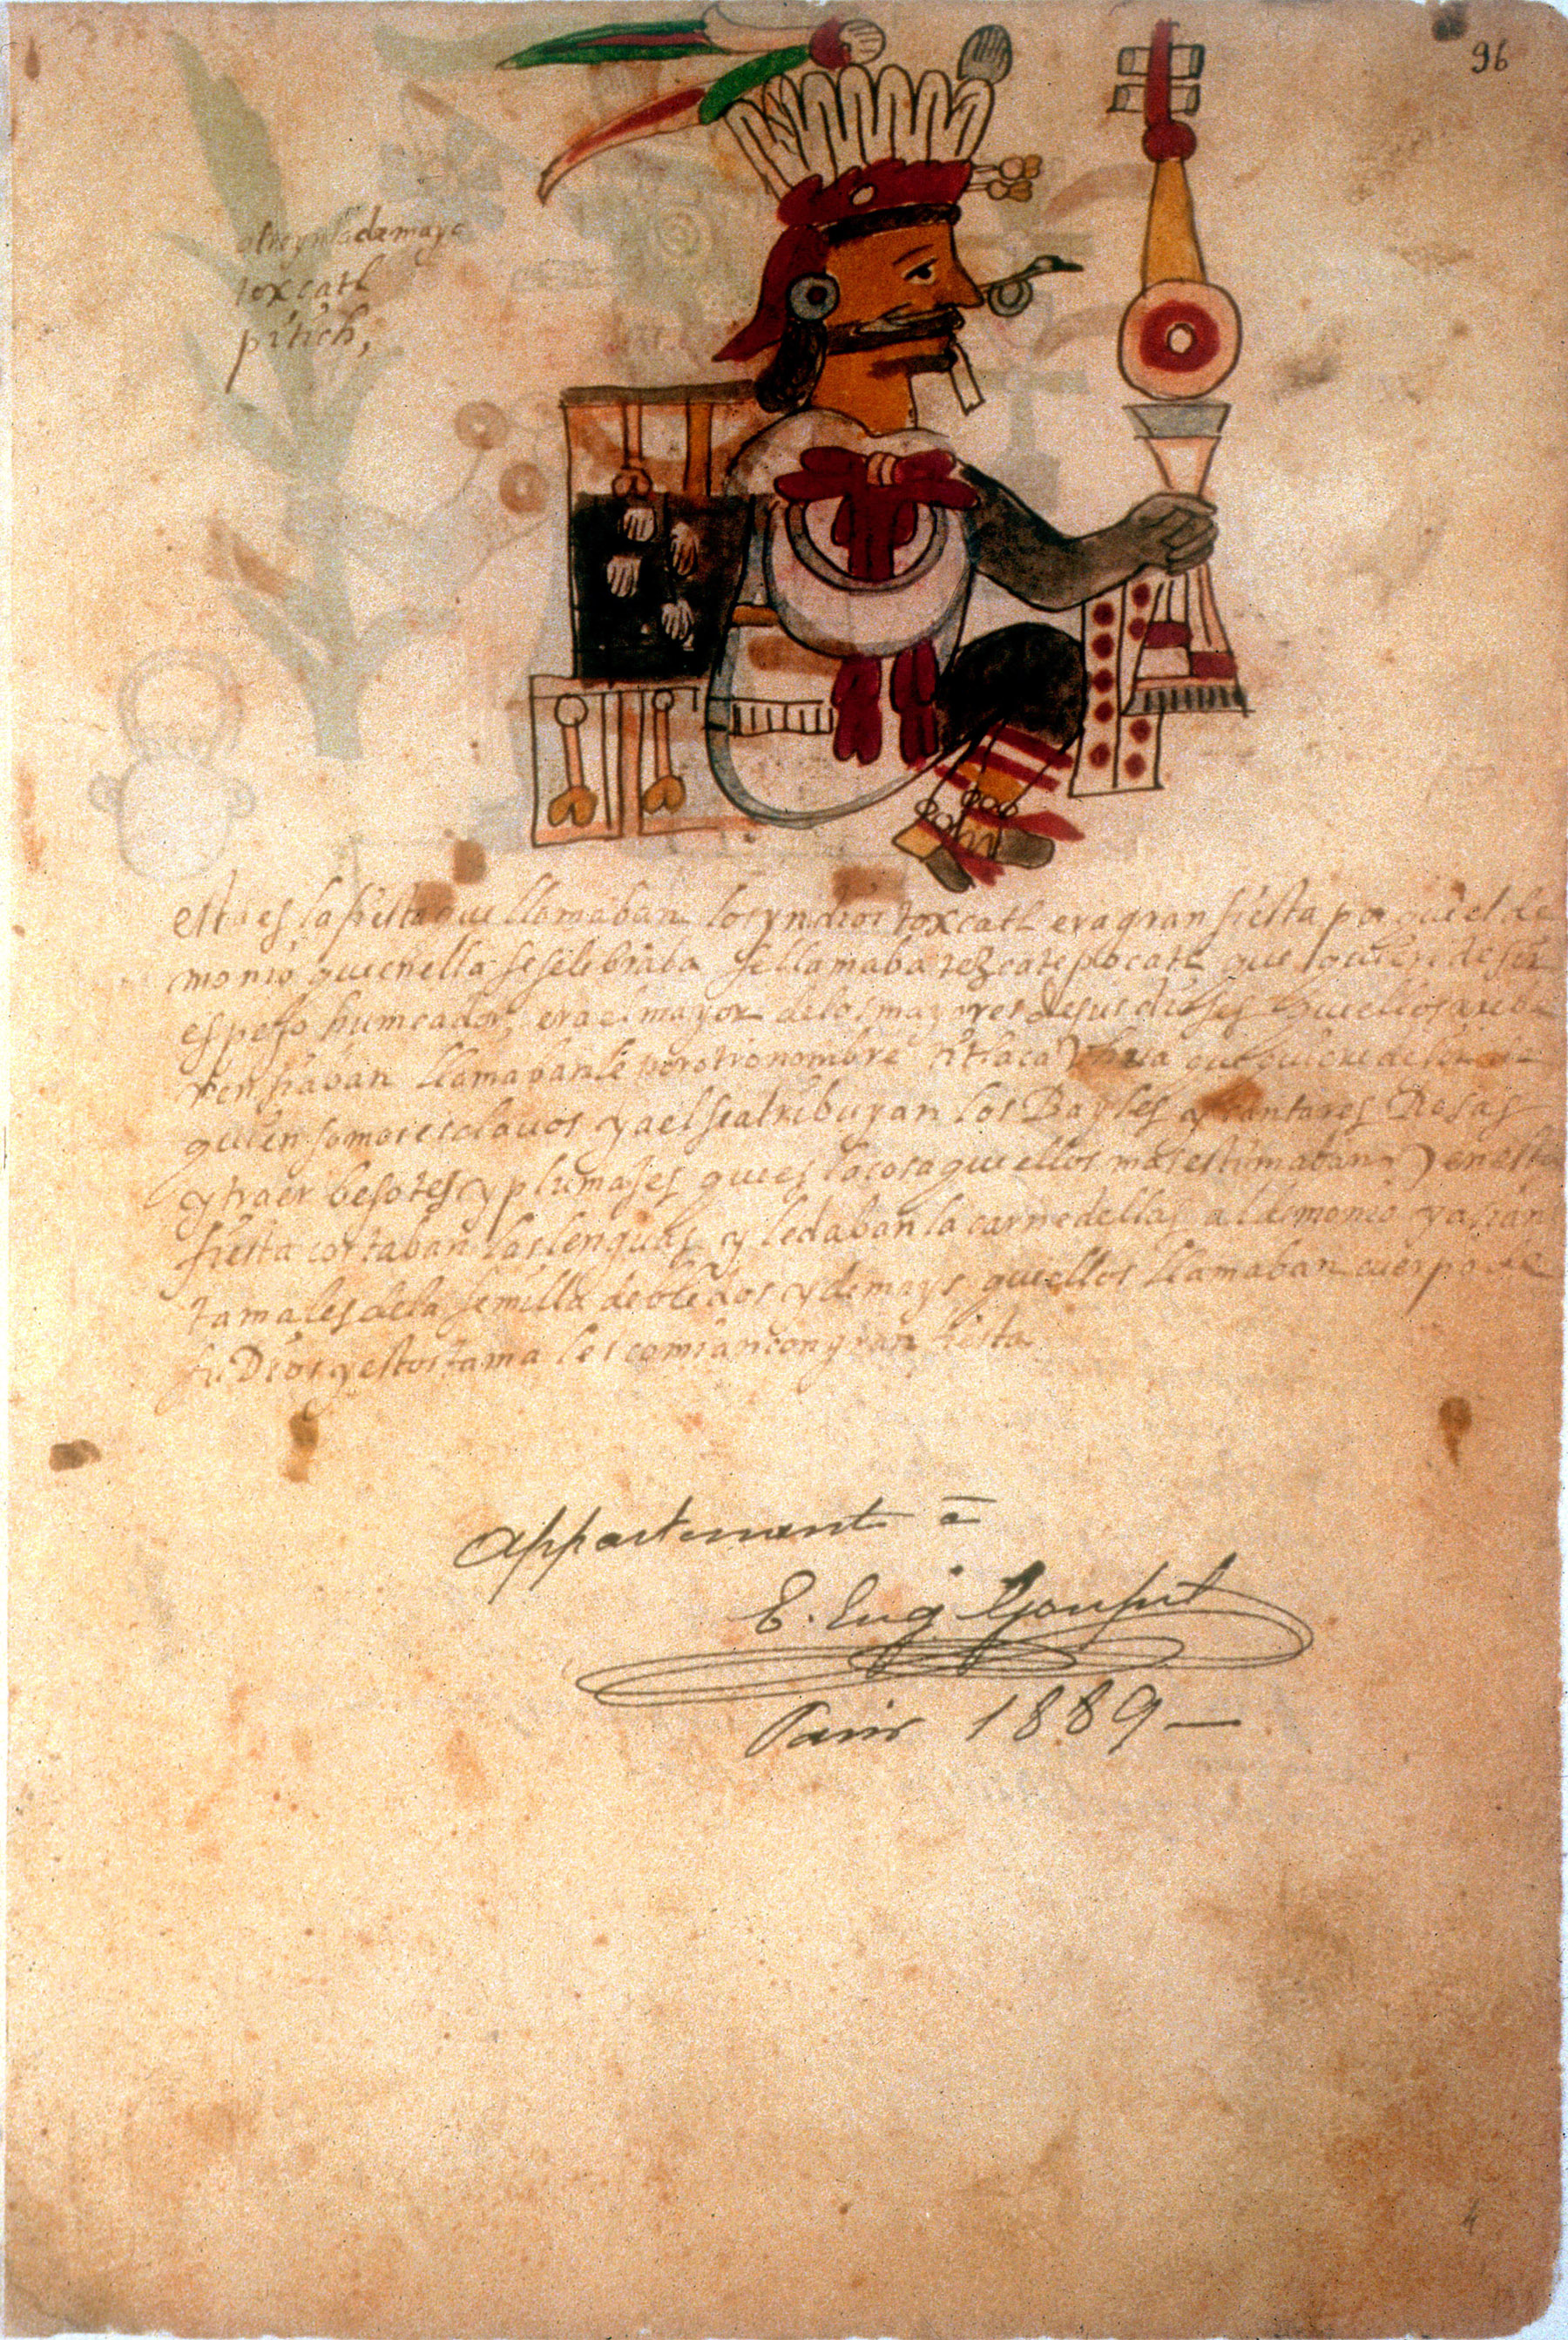 96
toxcatl
pitich,
esta es la fiesta que llamaban los yndios toxcatl era gran fiesta por que el de
monio que en ella se selebraba se llamaba tezcatepocatl que quiere desir
espejo humeador, era el mayor de los mayores de sus dioses que ellos
rensiaban llamabanle por otro nombre que quiere desir
quien somos esclauos y a el se atribuyan los Bayles y cantares Rosas
y traer besotes y plumajes que es la cosa que ellos mas estimaban Y en esta
fiesta cortaban las lenguas y le daban la carne dellas al demonio y asian
tamales de la semilla de bledos y de mays que ellos llamaban cuerpo de
su Dios y estos tamales comian con gran fiesta
Appartenant à
E. Eug Goupil
Paris 1889 —